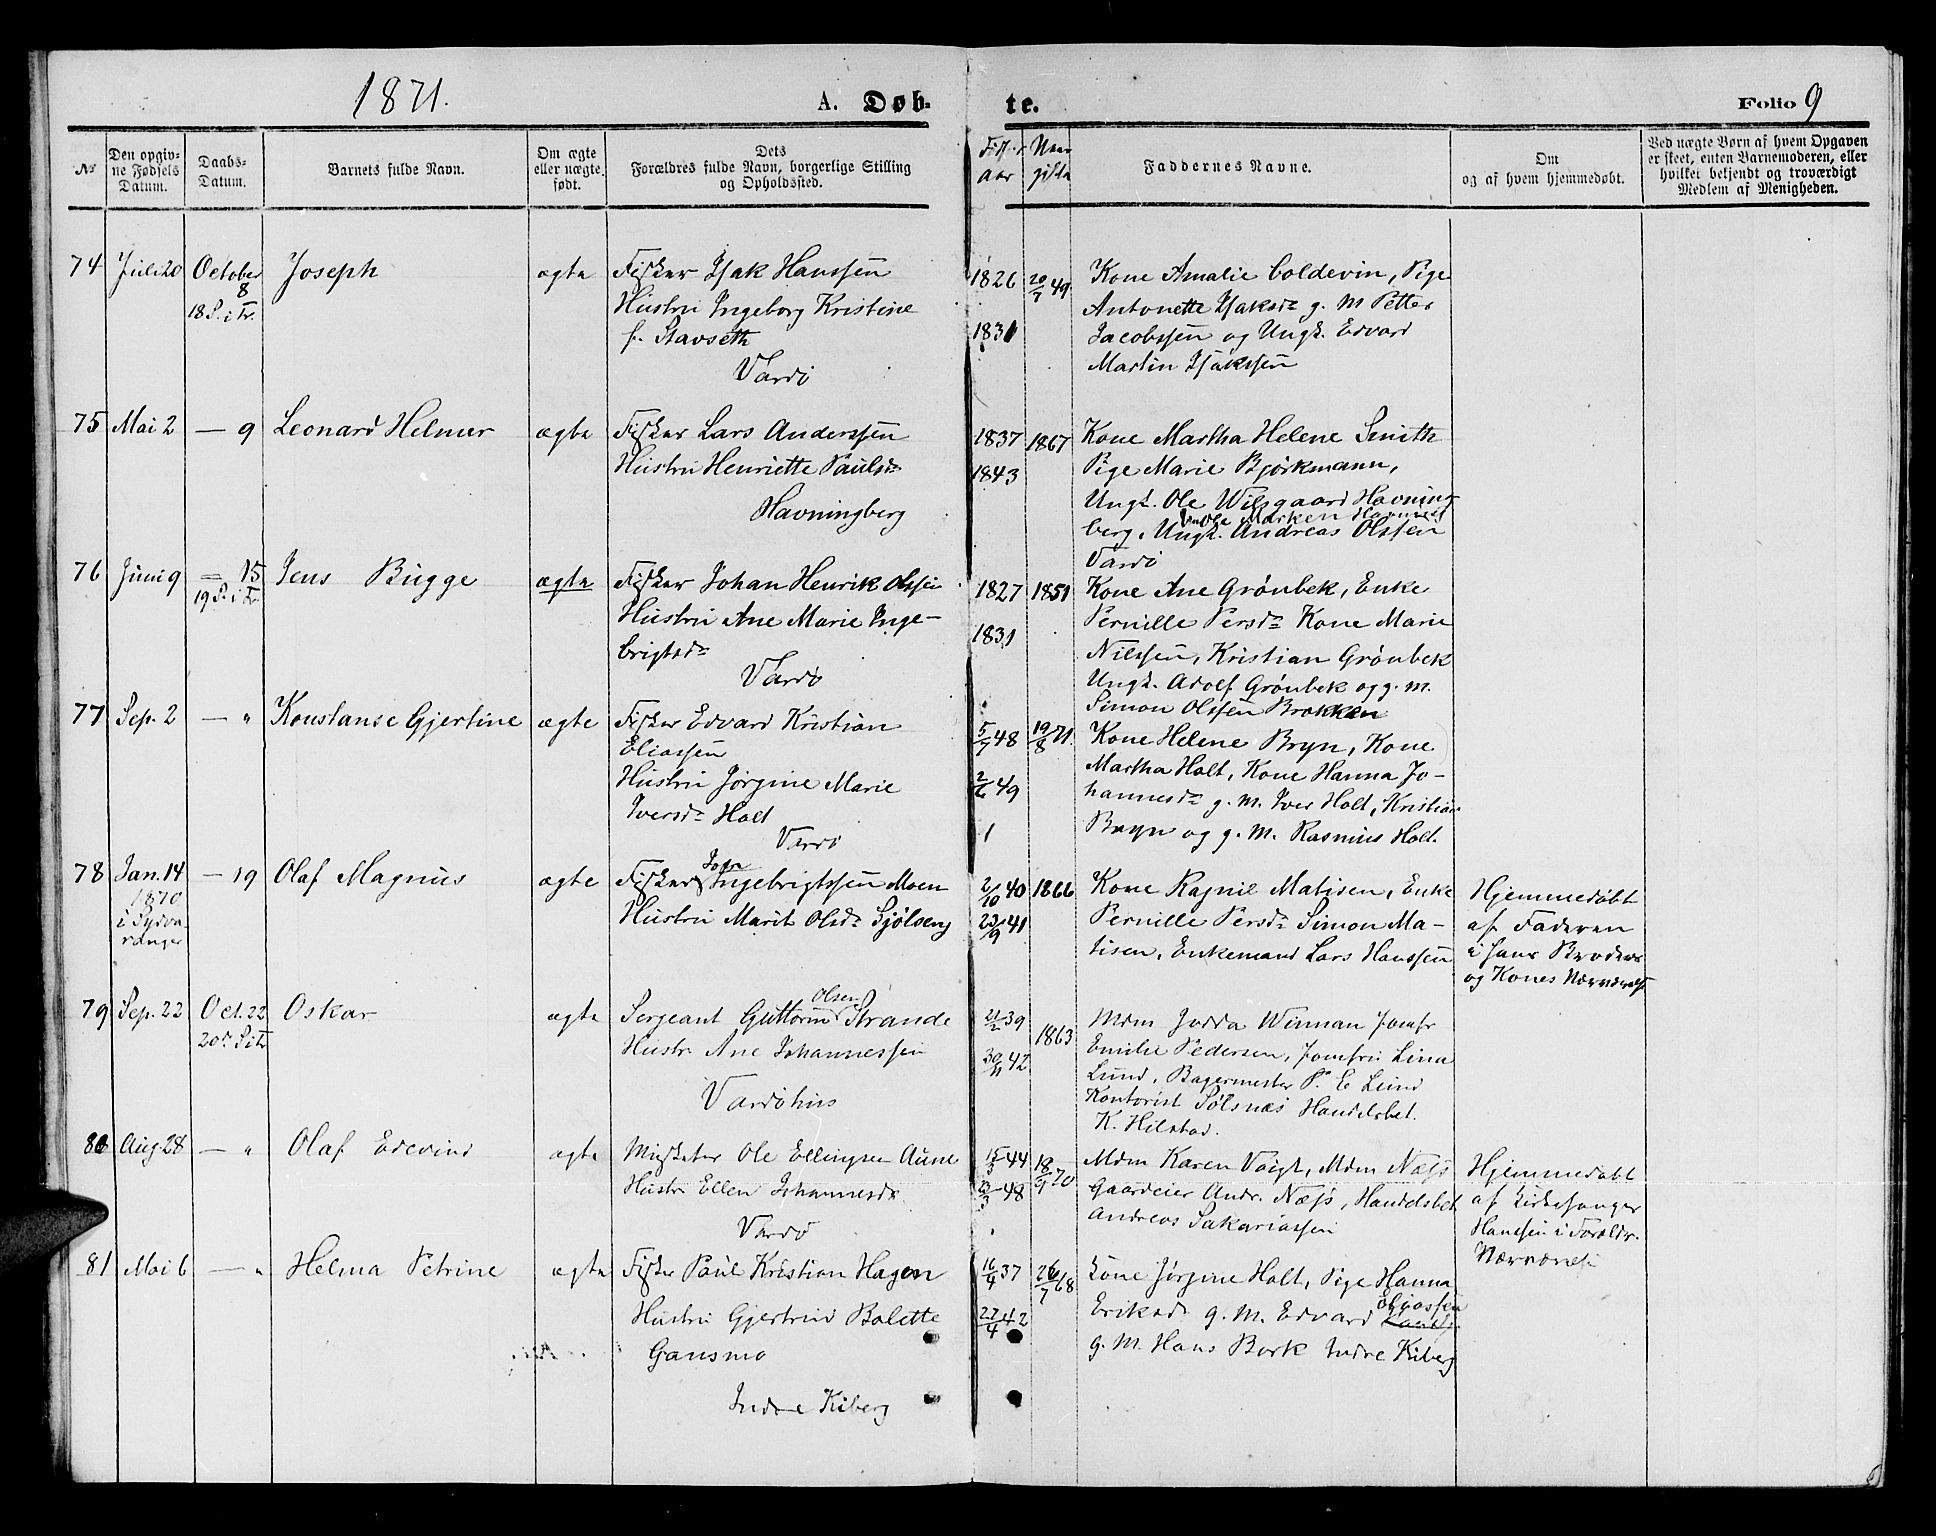 1871.
A. Døb-
te.
Folio 9
No
Den opgiv-
ne Fødsels
Datum.
Daabs-
Datum.
Barnets fulde Navn.
Om ægte
eller nægte
født.
Dets
Forældres fulde Navn, borgerlige Stilling
og Opholdssted.
aar
Faddernes Navne.
Om
og af hvem hjemmedøbt.
Ved nægte Børn af hvem Opgaven
er skeet, enten Barnemoderen, eller
hvilket bekjendt og troværdigt
Medlem af Menigheden.
74 Juli 20 October 8 18 S. i Tr. Joseph ægte
Fisker Isak Hanssen
Hustru Ingeborg Kristine
f. Stavseth
Vardö
1826 20/7 49
1831
Kone Amalie Coldevin, Pige
Antonette Isaksdr g. M Petter
Jacobssen og Ungk. Edvard
Martin Isakssen
75 Mai 2 — 9 Leonard Helmer ægte
Fisker Lars Anderssen
Hustru Henriette Paulsdr
Havningberg
1837 1867
1843
Kone Martha Helene Smith
Pige Marie Bjørkmann,
Ungk. Ole Wilsgaard Havning
berg, Ungk. Andreas Olssen
Vardö
76 Juni 9 — 15 19 S. i Tr Jens Bugge ægte
Fisker Johan Henrik Olssen
Hustru Ane Marie Inge-
brigtsdr
Vardö
1827 1851
1831
Kone Ane Grönbek, Enke
Pernille Persdr Kone Marie
Nilssen, Kristian Grönbek
Ungk. Adolf Grönbek og g. m.
Simon Olssen Brokken
77 Sep. 2 — " Konstanse Gjertine ægte
Fisker Edvard Kristian
Eliassen
Hustru Jørgine Marie
Iversdr Holt
Vardö
5/7 48 19/8 71.
2/6 49
1
Kone Helene Bryn, Kone
Martha Holt, Kone Hanna Jo-
hannesdr g. M. Iver Holt, Kristian
Bryn og g. M. Rasmus Holt.
78 Jan. 14 1870 i Sydva- ranger — 19 Olaf Magnus ægte
Fisker Ingebrigtssen Moen
Hustru Marit Olsdr Sjölseng
2/10 40 1866
23/9 41
Kone Ragnil Matisen, Enke
Pernille Persdr Simon Ma-
tisen, Enkemand Lars Hanssen
Hjemmedøbt
af Faderen
i hans Broders
og Kones Nærværelse
79 Sep. 22 Oct. 22 20de S i Tr Oskar ægte
Olsen
Sergeant Guttorm Strande
Hustr. Ane Johannessen
Vardöhus
21/2 39 1863
30/11 42
Mdm Jodda Winnan Jomfr
Emilie Pedersen, Jomfru Lina
Lund, Bagermester P. E Lund
Kontorist Sölsnæs Handelsbet.
K. Hilstad.
80 Aug 28 — " Olaf Edevind ægte
Musketer Ole Ellingsen Aune
Hustr. Ellen Johannesdr
Vardö
15/3 44 18/9 70
23/3 48
Mdm Karen Voigt, Mdm Næss
Gaardeier Andr. Næss, Handelsbet
Andreas Sakariassen
Hjemmedøbt
af Kirkesanger
Hanssen i Foraldr.
Nærværelse
81 Mai 6 — " Helma Petrine ægte
Fisker Paul Kristian Hagen
Hustru Gjertrud Bolette
Gansmo
Indre Kiberg
16/4 37 26/7 68
27/4 42
Kone Jørgine Holt, Pige Hanna
Eliassen
Eriksd. g. M. Edvard
g. M. Hans Bork Indre Kiberg